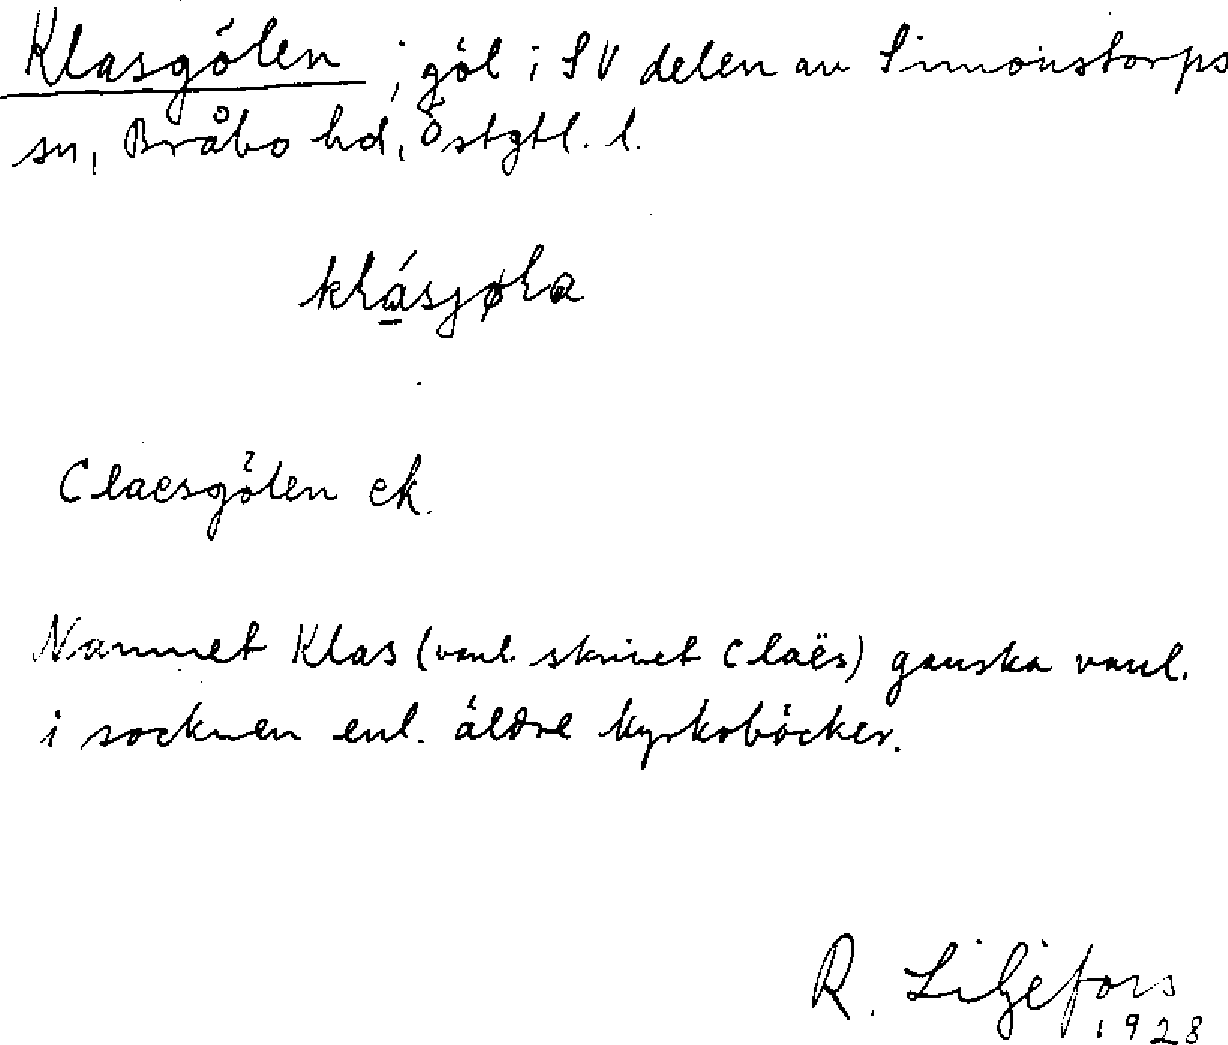 Klasgölen, göl i SV delen av Simonstorps
sn, Bråbo hd, Östgtl. l.
klásjøla
Claesgölen ek.
Namnet Klas (vanl. skrivet Claës) ganska vanl.
i socknen enl. äldre kyrkoböcker.
R. Liljefors
1928